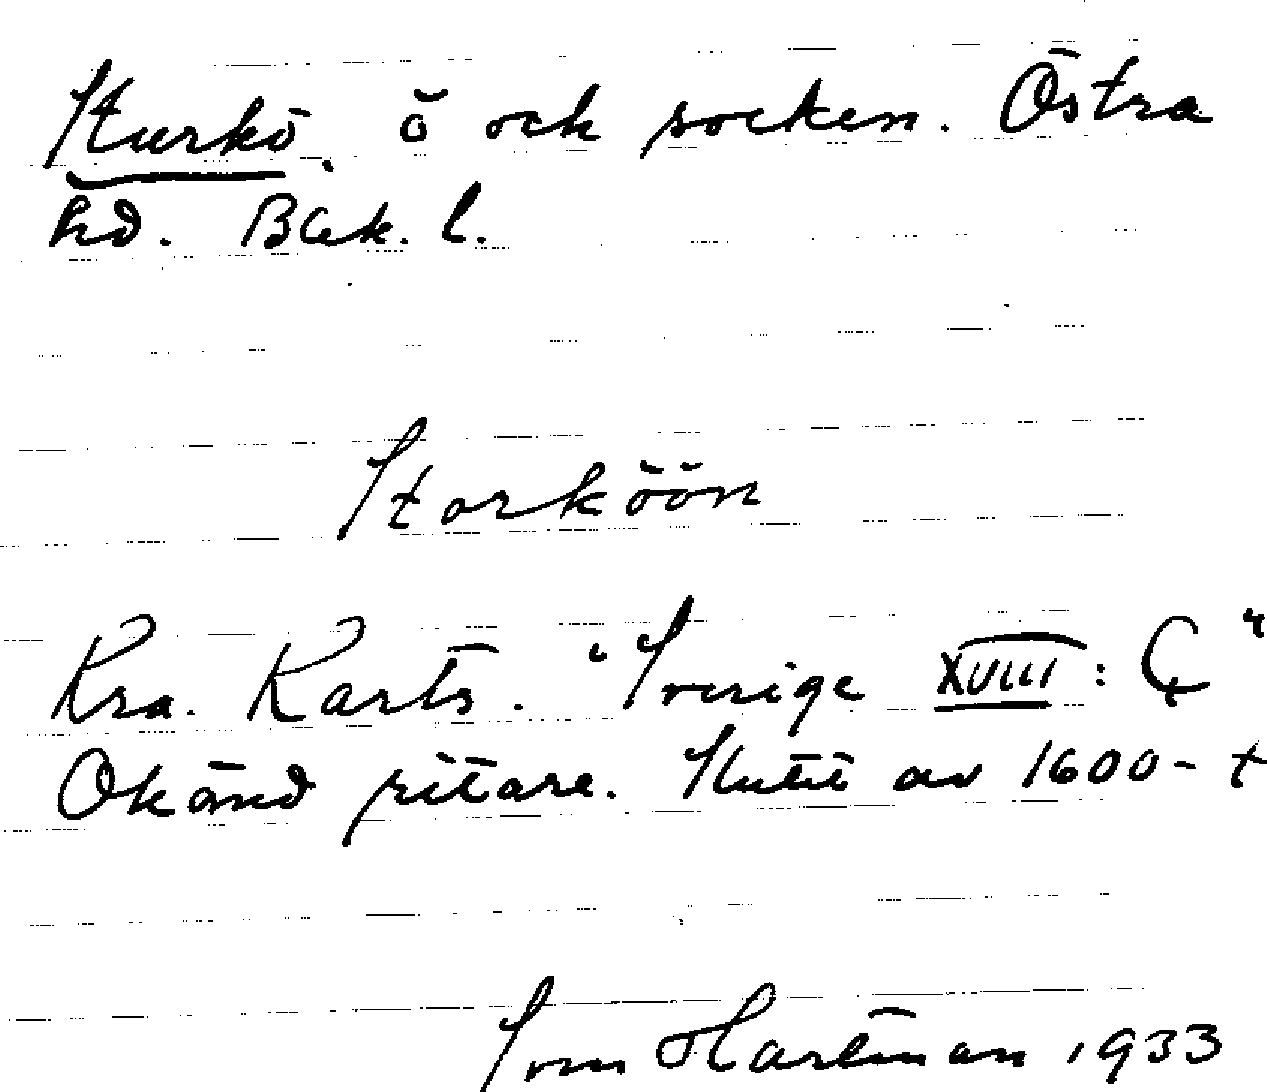 Sturkö, ö och socken. Östra
hd. Blek. l.
Storköön
Kra. Karts. "Sverige XVIII: C"
Okänd ritare. Slutet av 1600-t
Sven Hartman 1933